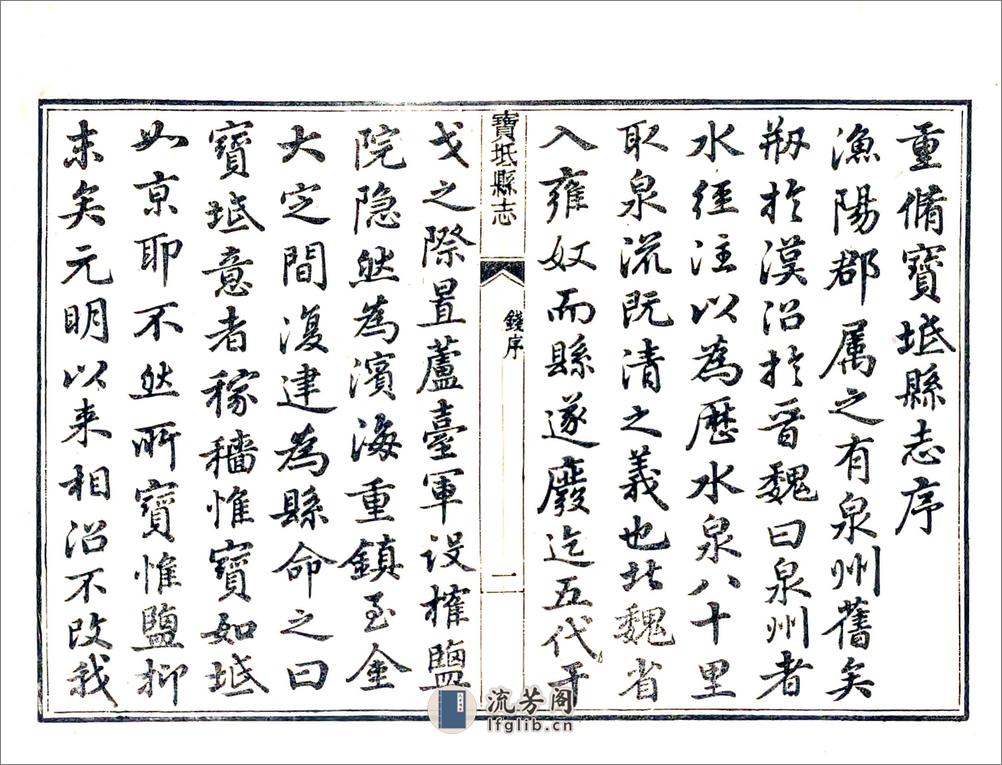 重脩寶坻縣志序
漁陽郡属之有泉州舊矣
剏於漢沿於晉魏曰泉州者
水徑注以為歷水泉八十里
取泉流既清之義也北魏省
入雍奴而縣遂廢迄五代干
寶坻縣志
錢序
一
戈之際置蘆臺軍设搉鹽
院隐然為濱海重鎮至金
大定間復建為縣命之曰
寶坻意者稼穡惟寶如坻
如京耶不然所寶惟鹽抑
末矣元明以来相沿不改我
流芳阁
lfglib.cn